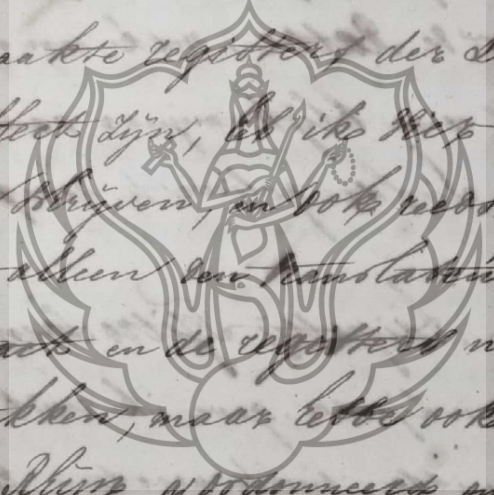 aakte registers der
zijn, als ik hier
schrijven, en ook reeds
alleen den translateur
en de registers n
kken, maar hebbe ook